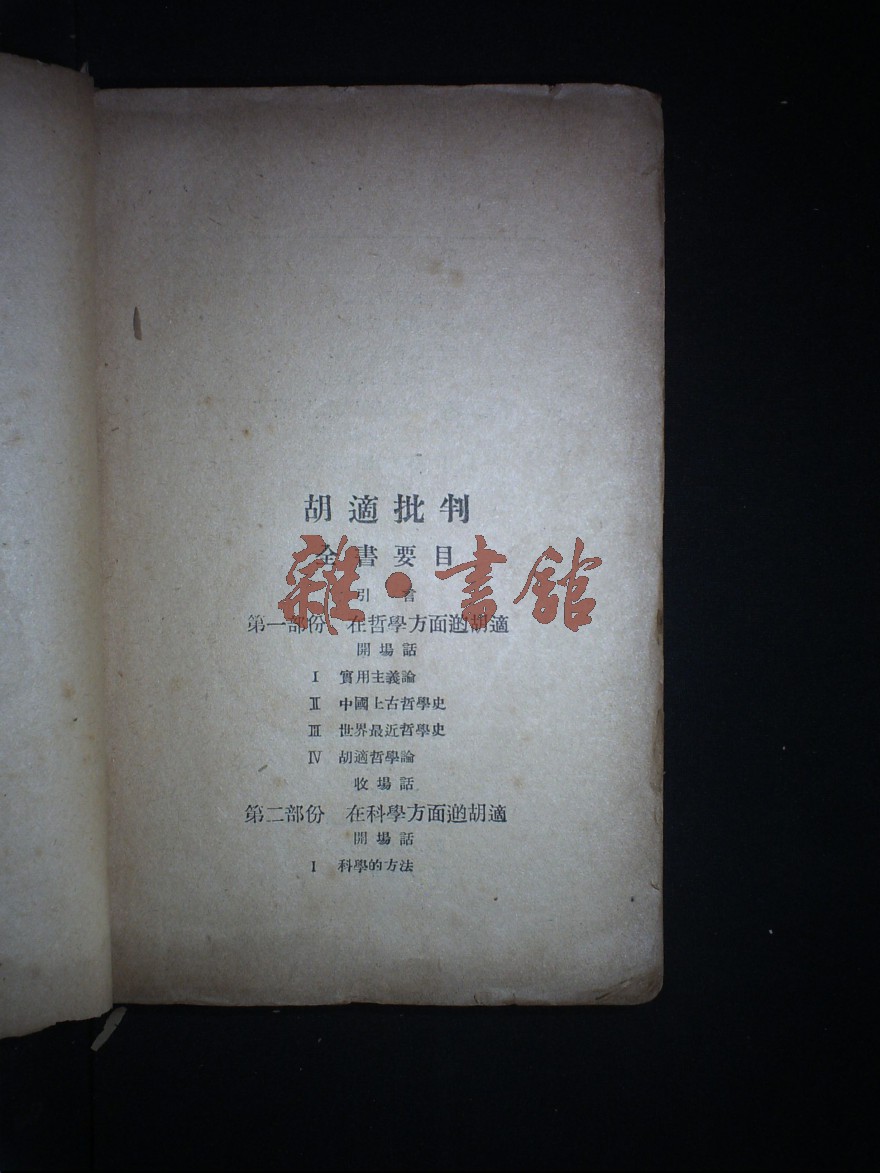 胡適批判
全書要目
雜·書館
引言
第一部份 在哲學方面逌胡適
開場話
I 實用主義論
II 中國上古哲學史
III 世界最近哲學史
IV 胡適哲學論
收場話
第二部份 在科學方面逌胡適
開場話
I 科學的方法